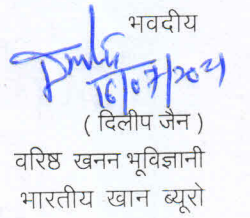 भवदीय
16/07/2021
( दिलीप जैन )
वरिष्ठ खनन भूविज्ञानी
भारतीय खान ब्यूरो